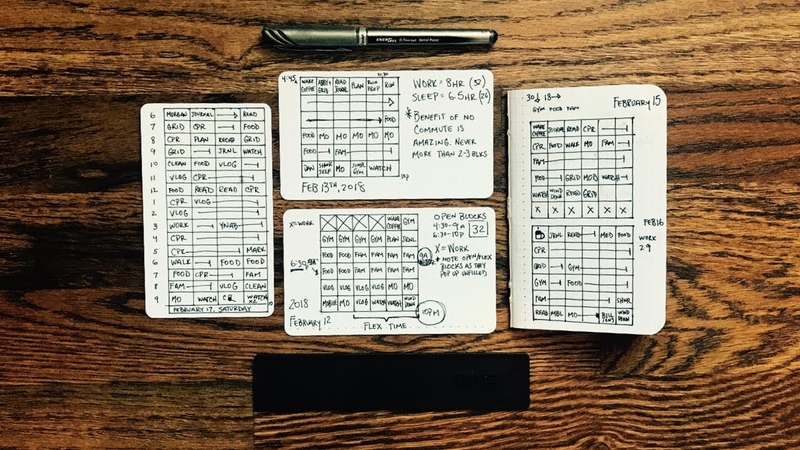 6 MORGAN JOURNAL READ
7 GRID CPR FOOD
8 CPR PLAN READ GRID
9 GRID JRNL WATCH
10 CLEAN FOOD VLOG
11 VLOG CPR
12 FOOD READ READ CPR
1 CPR VLOG
2 VLOG
3 WORK YNAB
4 CPR
5 CPR MARK
6 WALK FOOD FOOD
7 FOOD CPR FAM
8 FAM VLOG CLEAN
9 MO WATCH CR WATCH
FEBRUARY 17. SATURDAY
4:45A WAKE COFFEE GRID READ JRNL PLAN RUN PREP RUN
FOOD
FOOD MO MO MO MO MO
FOOD FAM
DAN SHWR SELF MO JRNL GYM WATCH
FEB 13TH, 2018
WORK = 8HR (32)
SLEEP = 6.5HR (26)
* BENEFIT OF NO
COMMUTE IS
AMAZING. NEVER
MORE THAN 2-3 BLKS
X=WORK WAKE COFFEE GYM
GYM GYM GYM GYM PLAN JRNL
FOOD FOOD FAM FAM FAM FAM
FOOD FOOD FAM FAM FAM FAM
VLOG VLOG VLOG VLOG VLOG VLOG
MO VLOG WATCH WATCH WIND DOWN
9A
10PM
2018
FEBRUARY 12
FLEX TIME
OPEN BLOCKS
4:30-9A
6:30-10P 32
X=WORK
* NOTE OPEN/FLEX
BLOCKS AS THEY
POP UP UNFILLED
30 18
GYM FOOD FAM
FEBRUARY 15
WAKE COFFEE JOURNAL READ CPR
CPR FOOD WALK MO FAM
FAM
FOOD GRID MOD WATCH
WATCH WIND DOWN READ GRID
X X X X X X
FEB 16
WORK
29
JRNL READ MOD FOOD
CPR
GRID GYM
GYM FOOD
FAM SHWR
READ MBL MO WIND DOWN